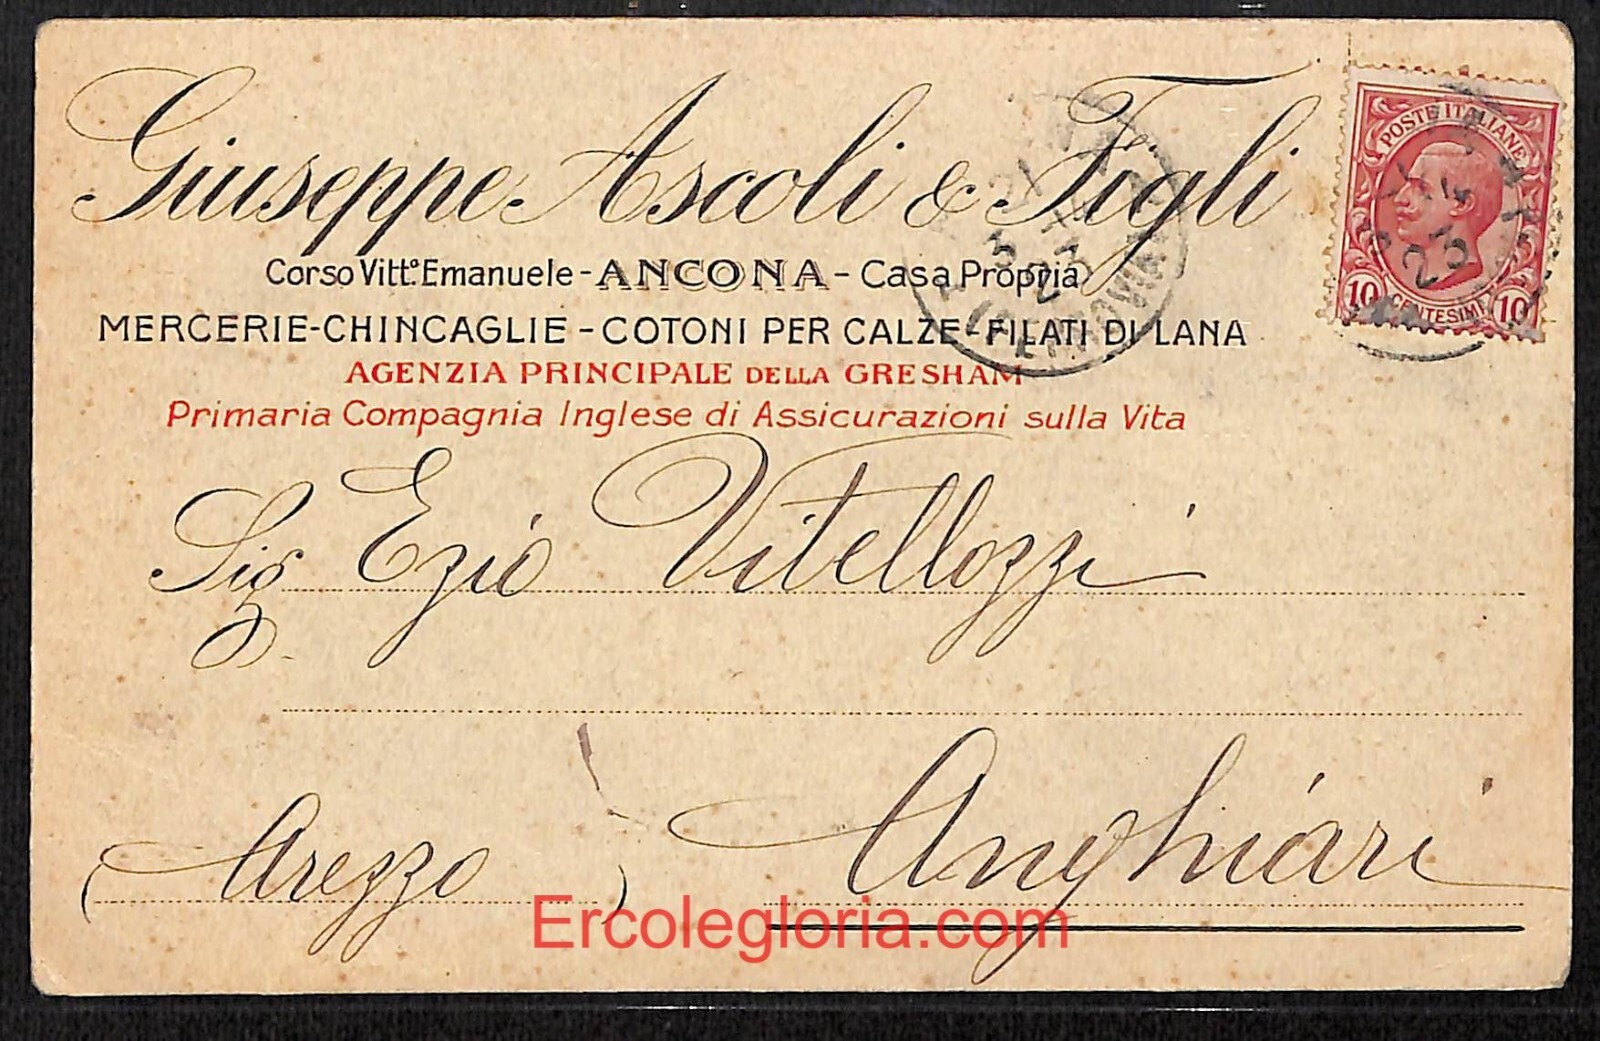 Giuseppe Ascoli & Figli
Corso Vittº. Emanuele - ANCONA - Casa Propria
MERCERIE-CHINCAGLIE - COTONI PER CALZE - FILATI DI LANA
AGENZIA PRINCIPALE DELLA GRESHAM
Primaria Compagnia Inglese di Assicurazioni sulla Vita
POSTE ITALIANE
10 CENTESIMI 10
21
FERROVIA
23
Sig Ezio Vitellozzi
Anghiari
(Arezzo)
Ercolegloria.com